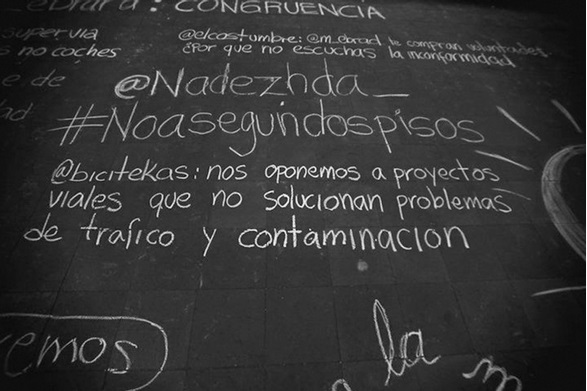 CONGRUENCIA
supervia
@elcostumbre: @m_ebrad le compran voluntades.
s no coches
¿Por que no escuchas la inconformidad
e de
@Nadezhda_
ad
#Noasegundospisos
@bicitekas: nos oponemos a proyectos
viales que no solucionan problemas
de trafico y contaminacion
emos
la
m